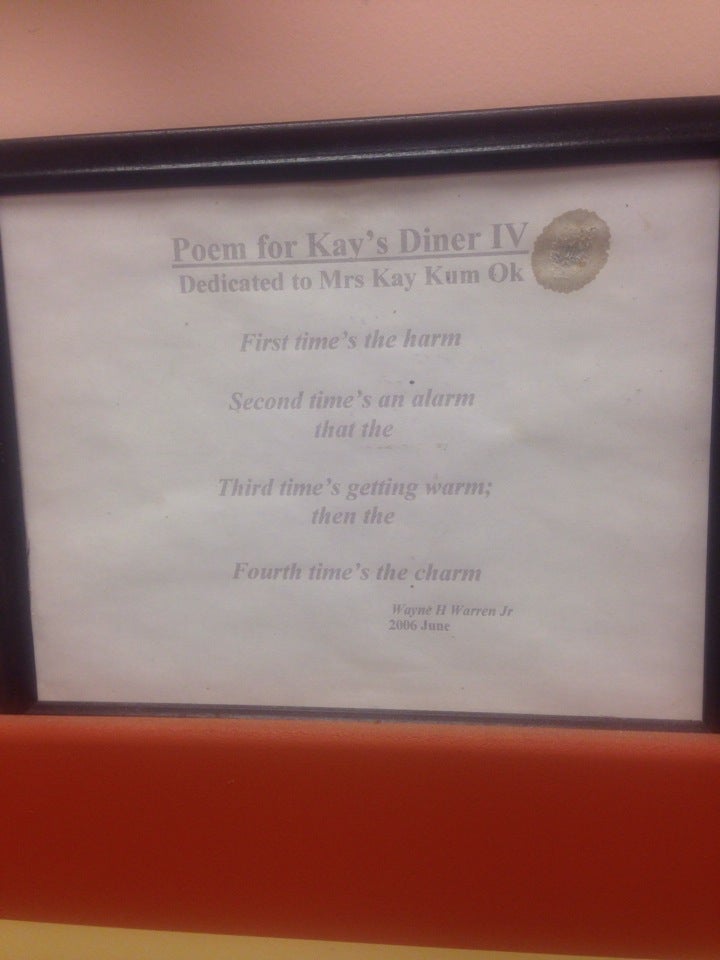 Poem for Kay's Diner IV
Dedicated to Mrs Kay Kum Ok
First time's the harm
Second time's an alarm
that the
Third time's getting warm;
then the
Fourth time's the charm
Wayne H Warren Jr
2006 June